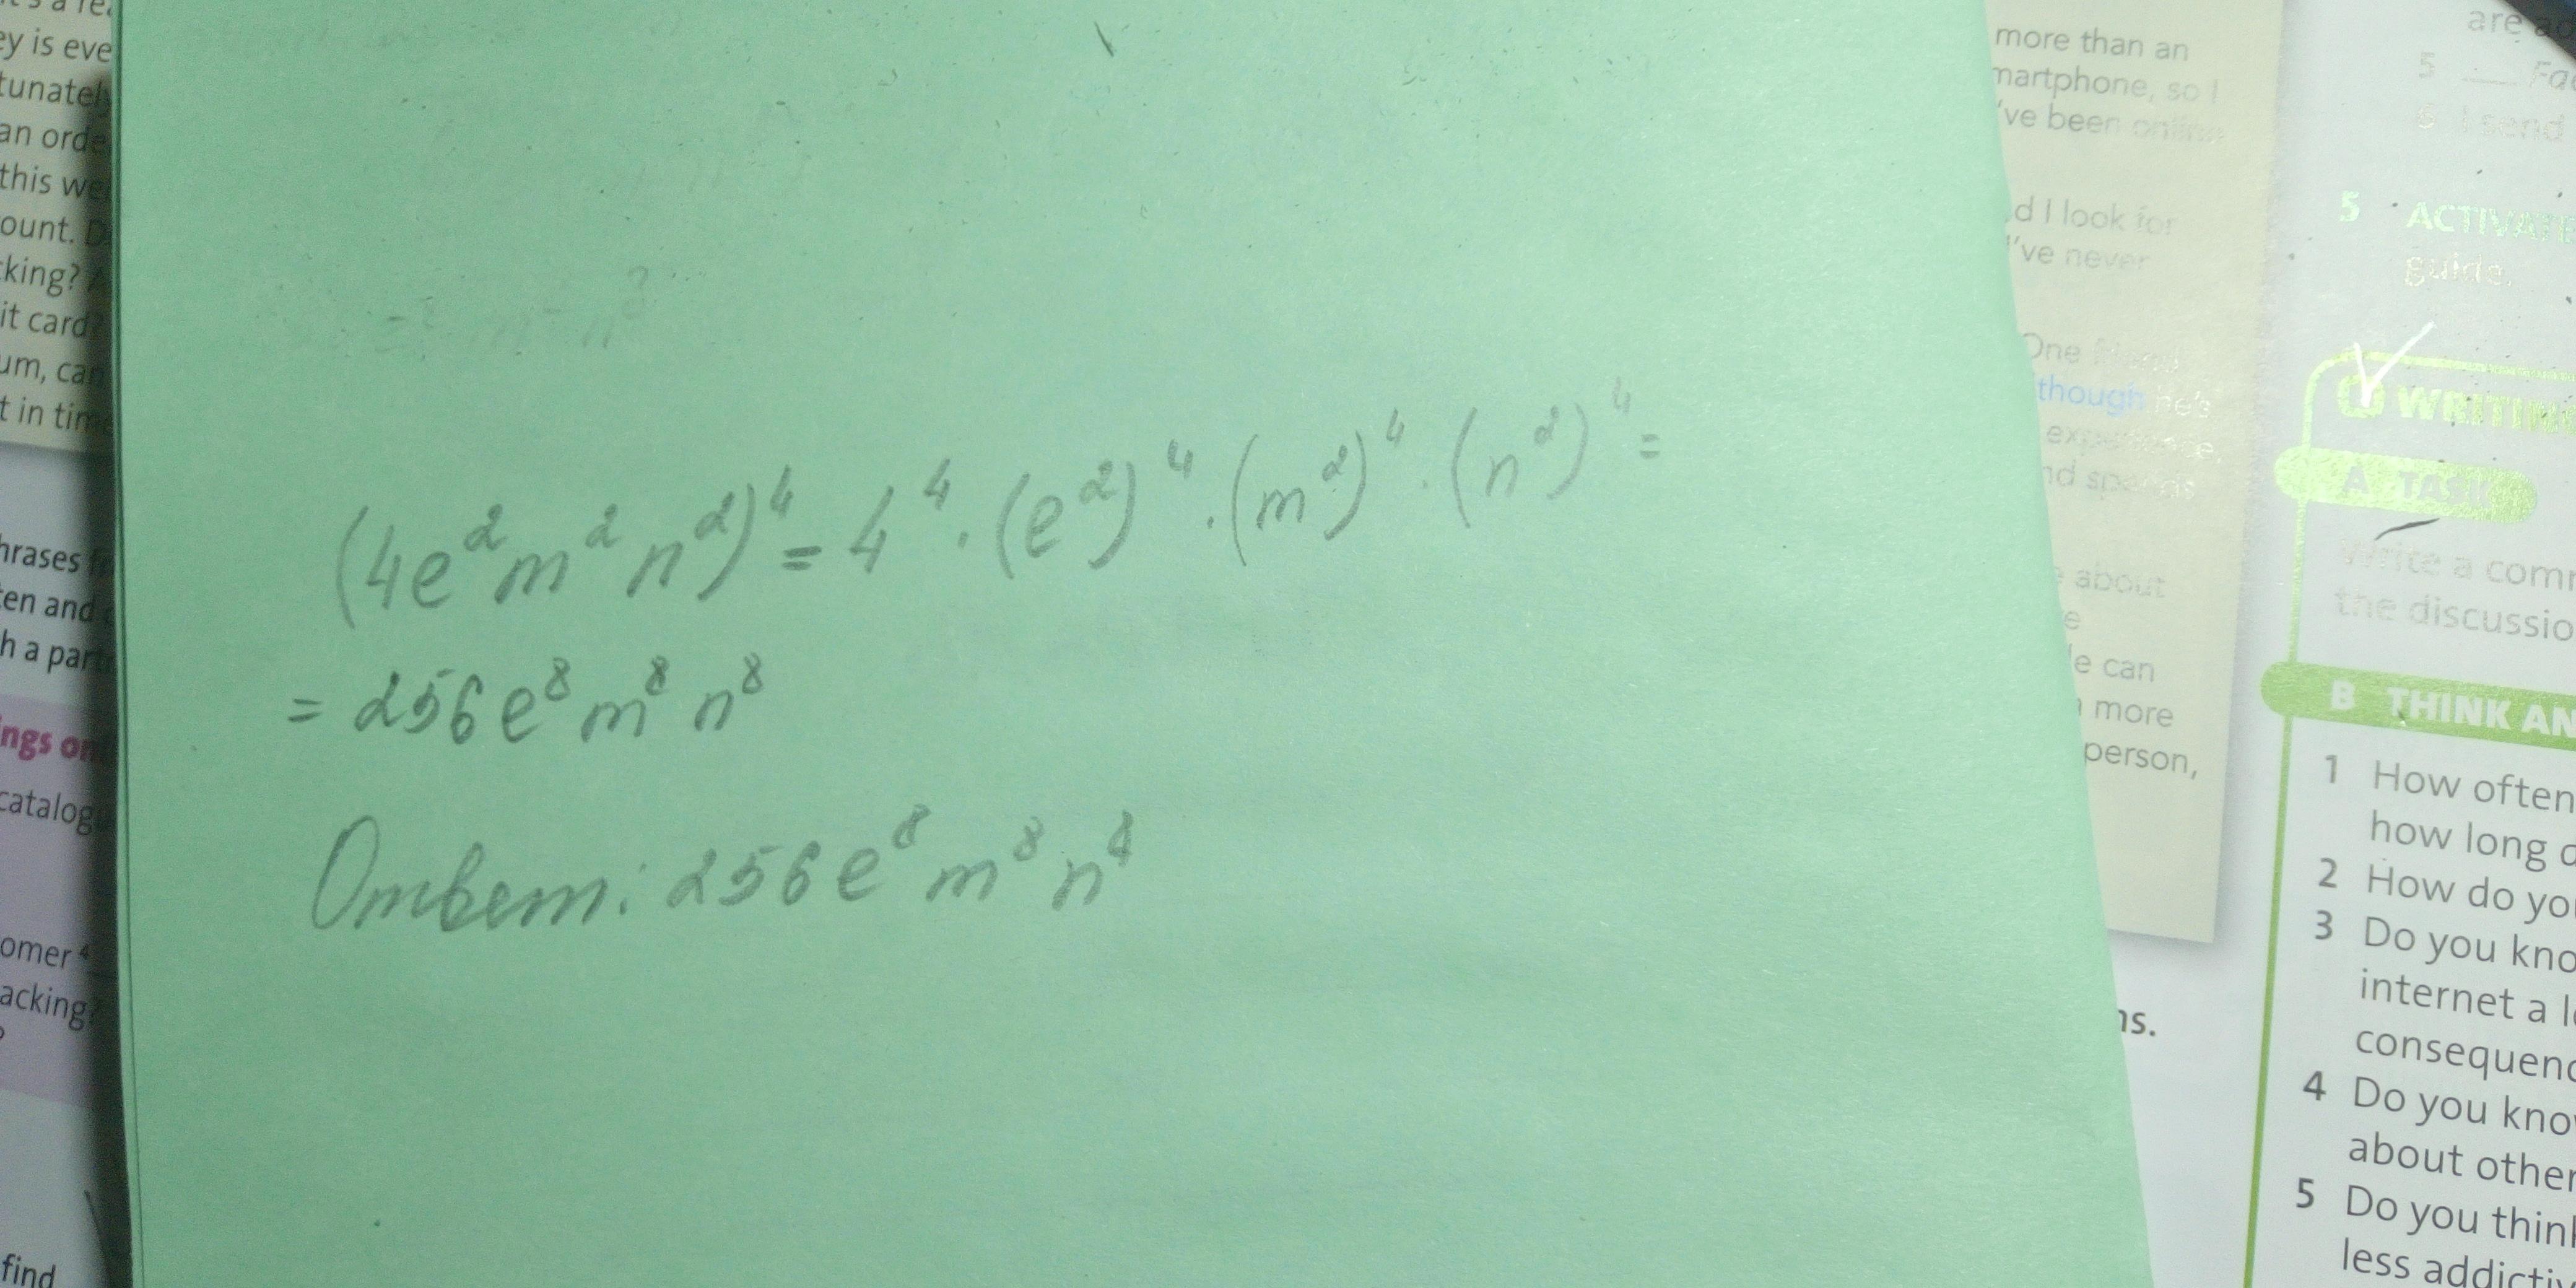 ey is eve
tunately
an orde
this we
ount. D
king? A
it card?
um, can
t in time
hrases f
ten and
h a part
ings on
catalog
omer 4
acking?
find
(4e²m²n²)⁴ = 4⁴ · (e²)⁴ · (m²)⁴ · (n²)⁴ =
= 256e⁸m⁸n⁸
Ответ: 256e⁸m⁸n⁸
more than an
martphone, so I
've been online
d I look for
've never
One
though he's
about
e
e can
more
person,
ns.
are
5
6 I send
5 ACTIVATE
guide.
WRITING
A TASK
Write a comm
the discussio
B THINK AN
1 How often
how long d
2 How do yo
3 Do you kno
internet a l
consequenc
4 Do you know
about other
5 Do you think
less addicti